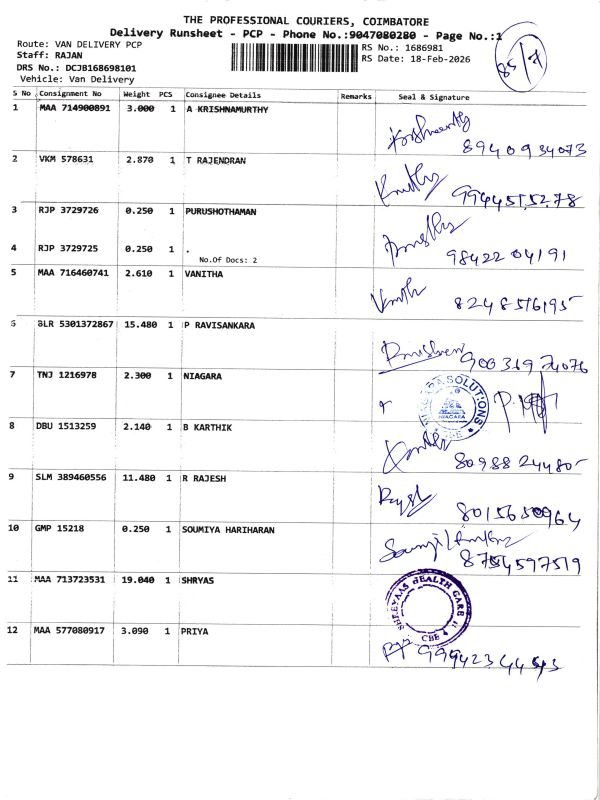 THE PROFESSIONAL COURIERS, COIMBATORE
Delivery Runsheet - PCP - Phone No.:9047080280 - Page No.:1
Route: VAN DELIVERY PCP
Staff: RAJAN
DRS No.: DCJB168698101
Vehicle: Van Delivery
RS No.: 1686981
RS Date: 18-Feb-2026
85/
S No Consignment No Weight PCS Consignee Details Remarks Seal & Signature
1 MAA 714900891 3.000 1 A KRISHNAMURTHY
8940934073
2 VKM 578631 2.870 1 T RAJENDRAN
3 RJP 3729726 0.250 1 PURUSHOTHAMAN
4 RJP 3729725 0.250 1 .
No.Of Docs: 2
9842204191
5 MAA 716460741 2.610 1 VANITHA
8248516195
6 BLR 5301372867 15.480 1 P RAVISANKARA
7 TNJ 1216978 2.300 1 NIAGARA
NIAGARA SOLUTIONS
NIAGARA
CBE
8 DBU 1513259 2.140 1 B KARTHIK
8098824480
9 SLM 389460556 11.480 1 R RAJESH
8015650964
10 GMP 15218 0.250 1 SOUMIYA HARIHARAN
8754597519
11 MAA 713723531 19.040 1 SHRYAS
SHREYAAS HEALTH CARE
CBE
12 MAA 577080917 3.090 1 PRIYA